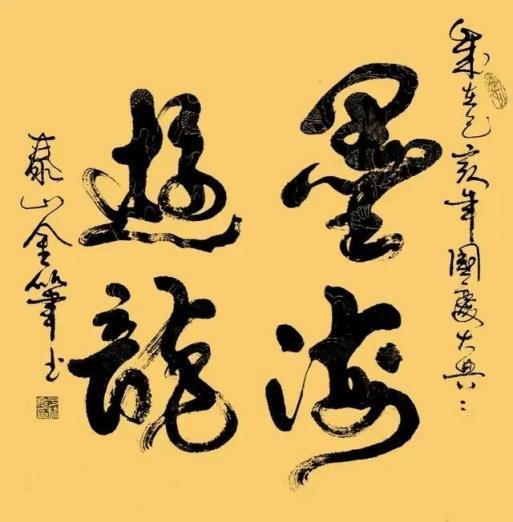 歲在己亥年國慶大典
墨海
遊龍
泰山金筆书